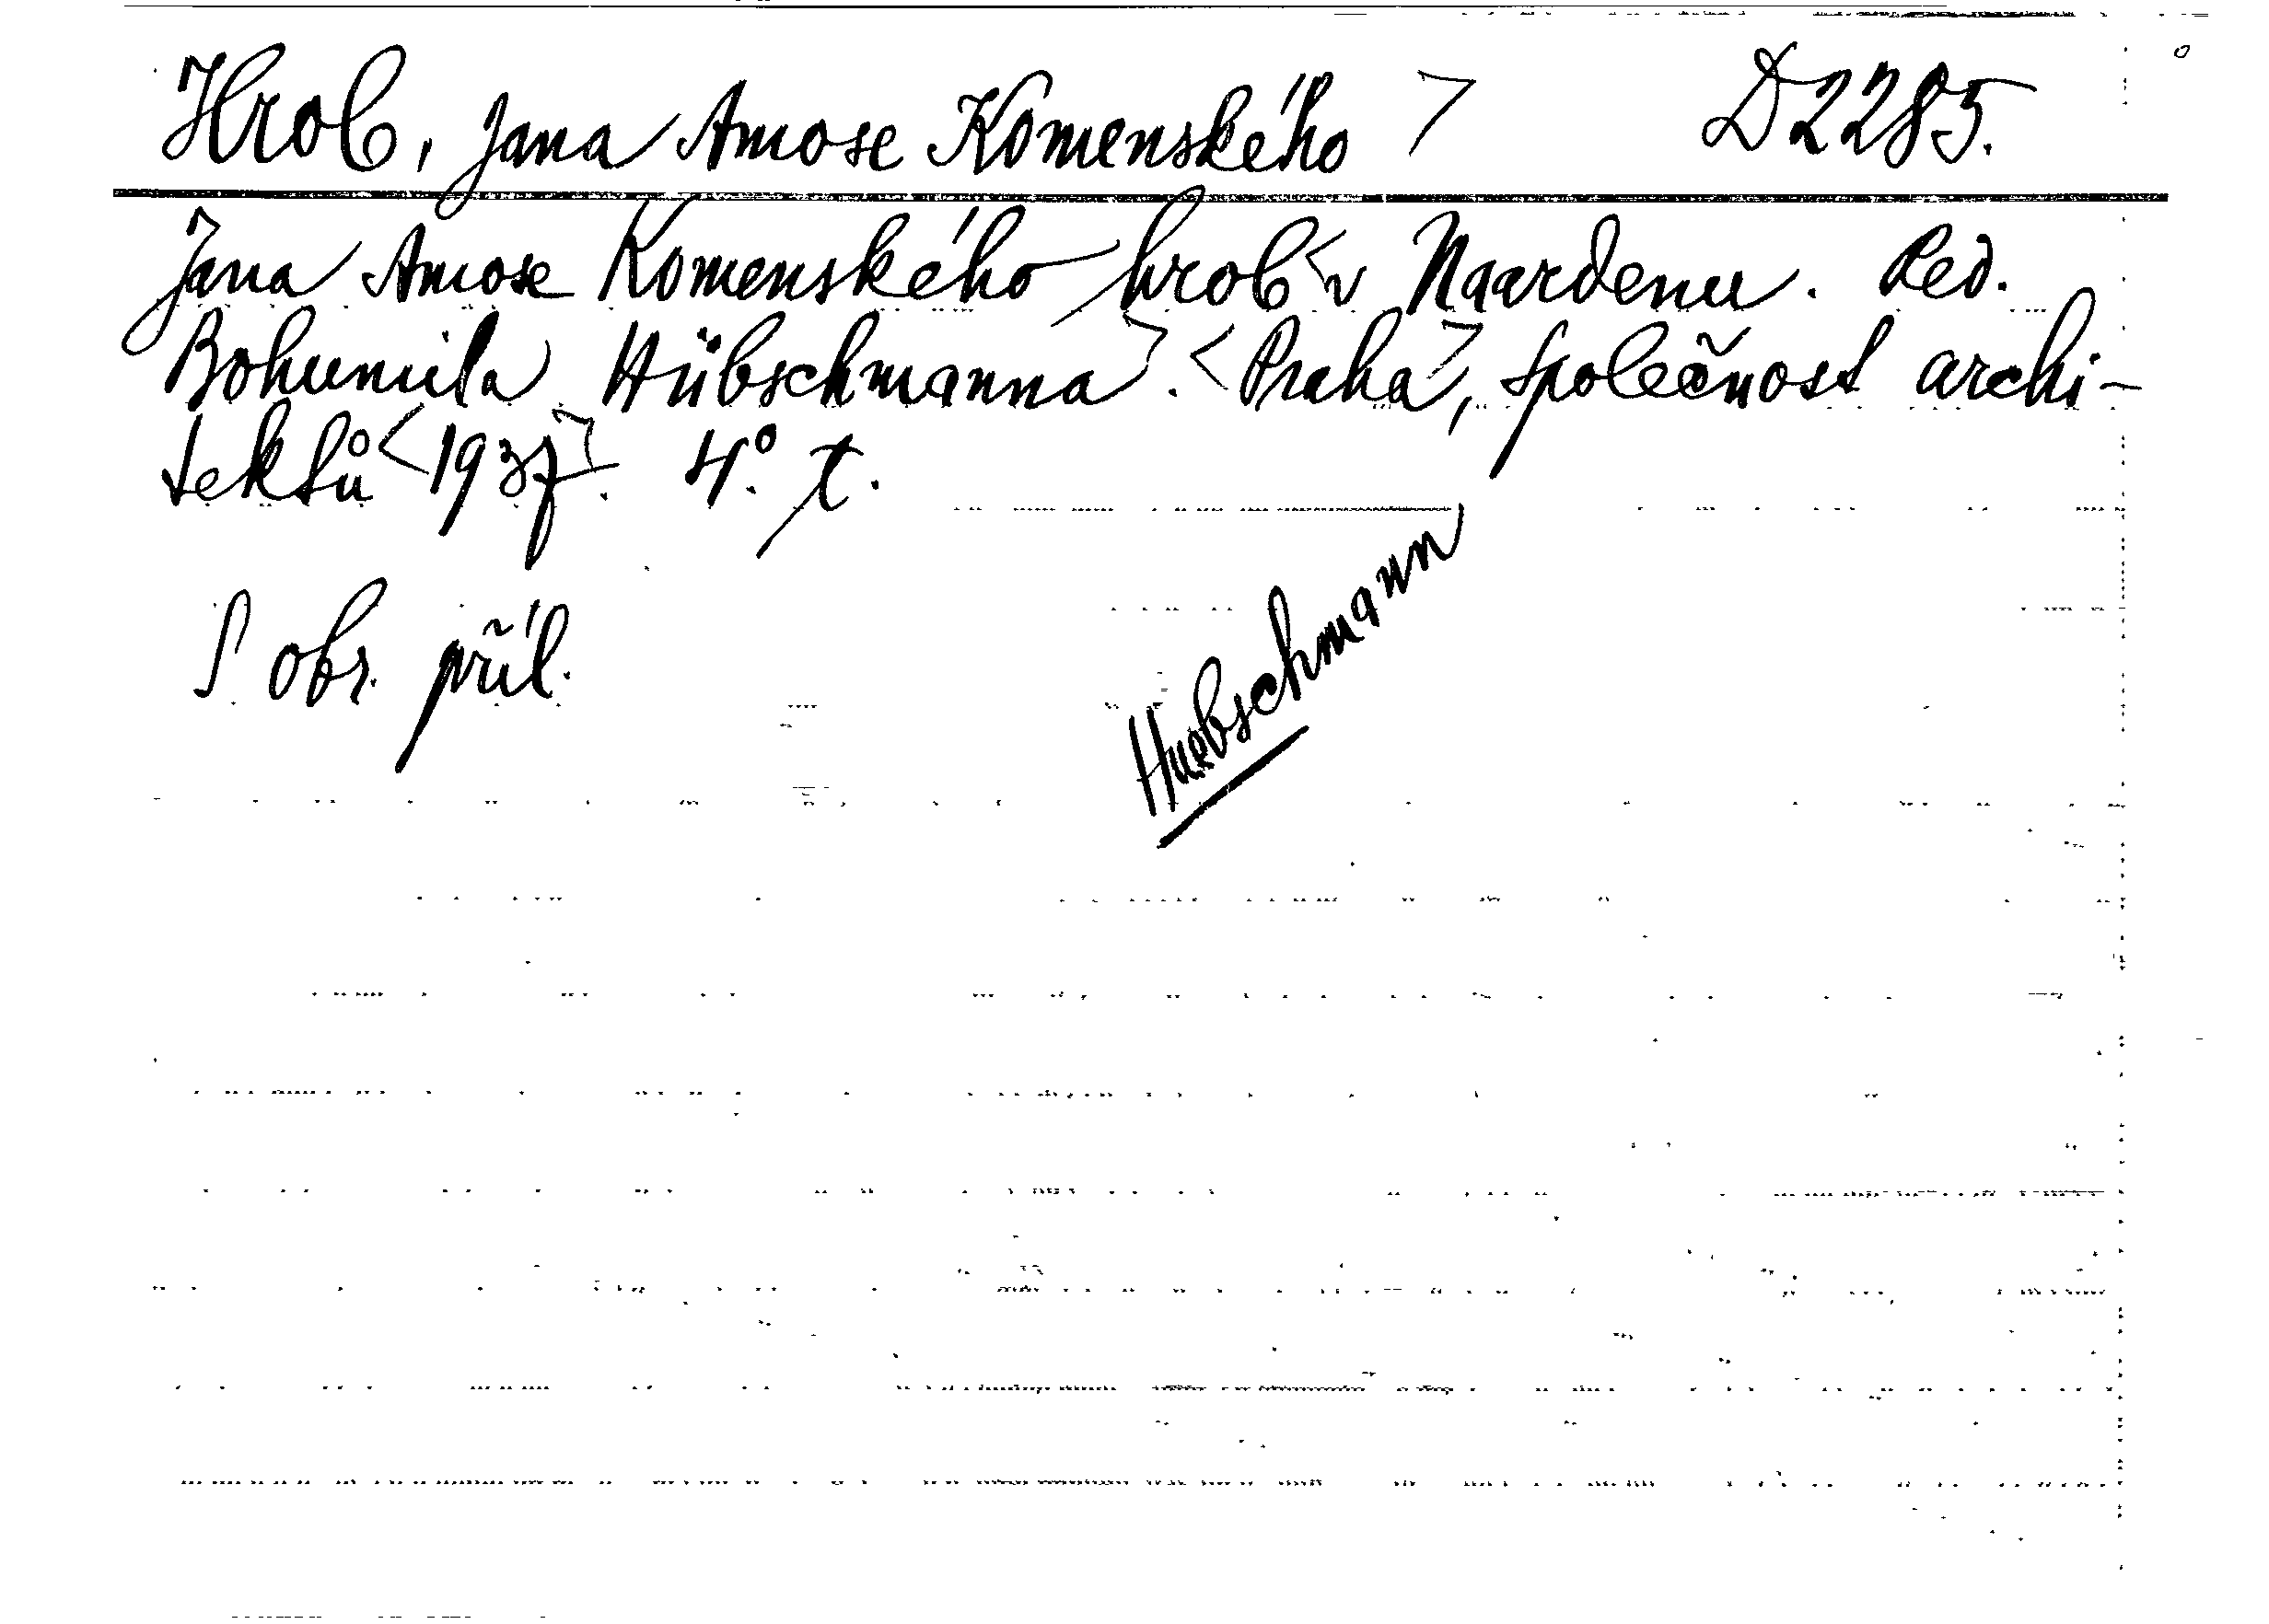 Hrob, Jana Amose Komenského > D2285.
Jana Amose Komenského hrob < v Naardenu. Red.
Bohumila Hübschmanna >. < Praha >, Společnost archi-
tektů < 1937 >. 4°. t.
S obr. příl.
Huebschmann